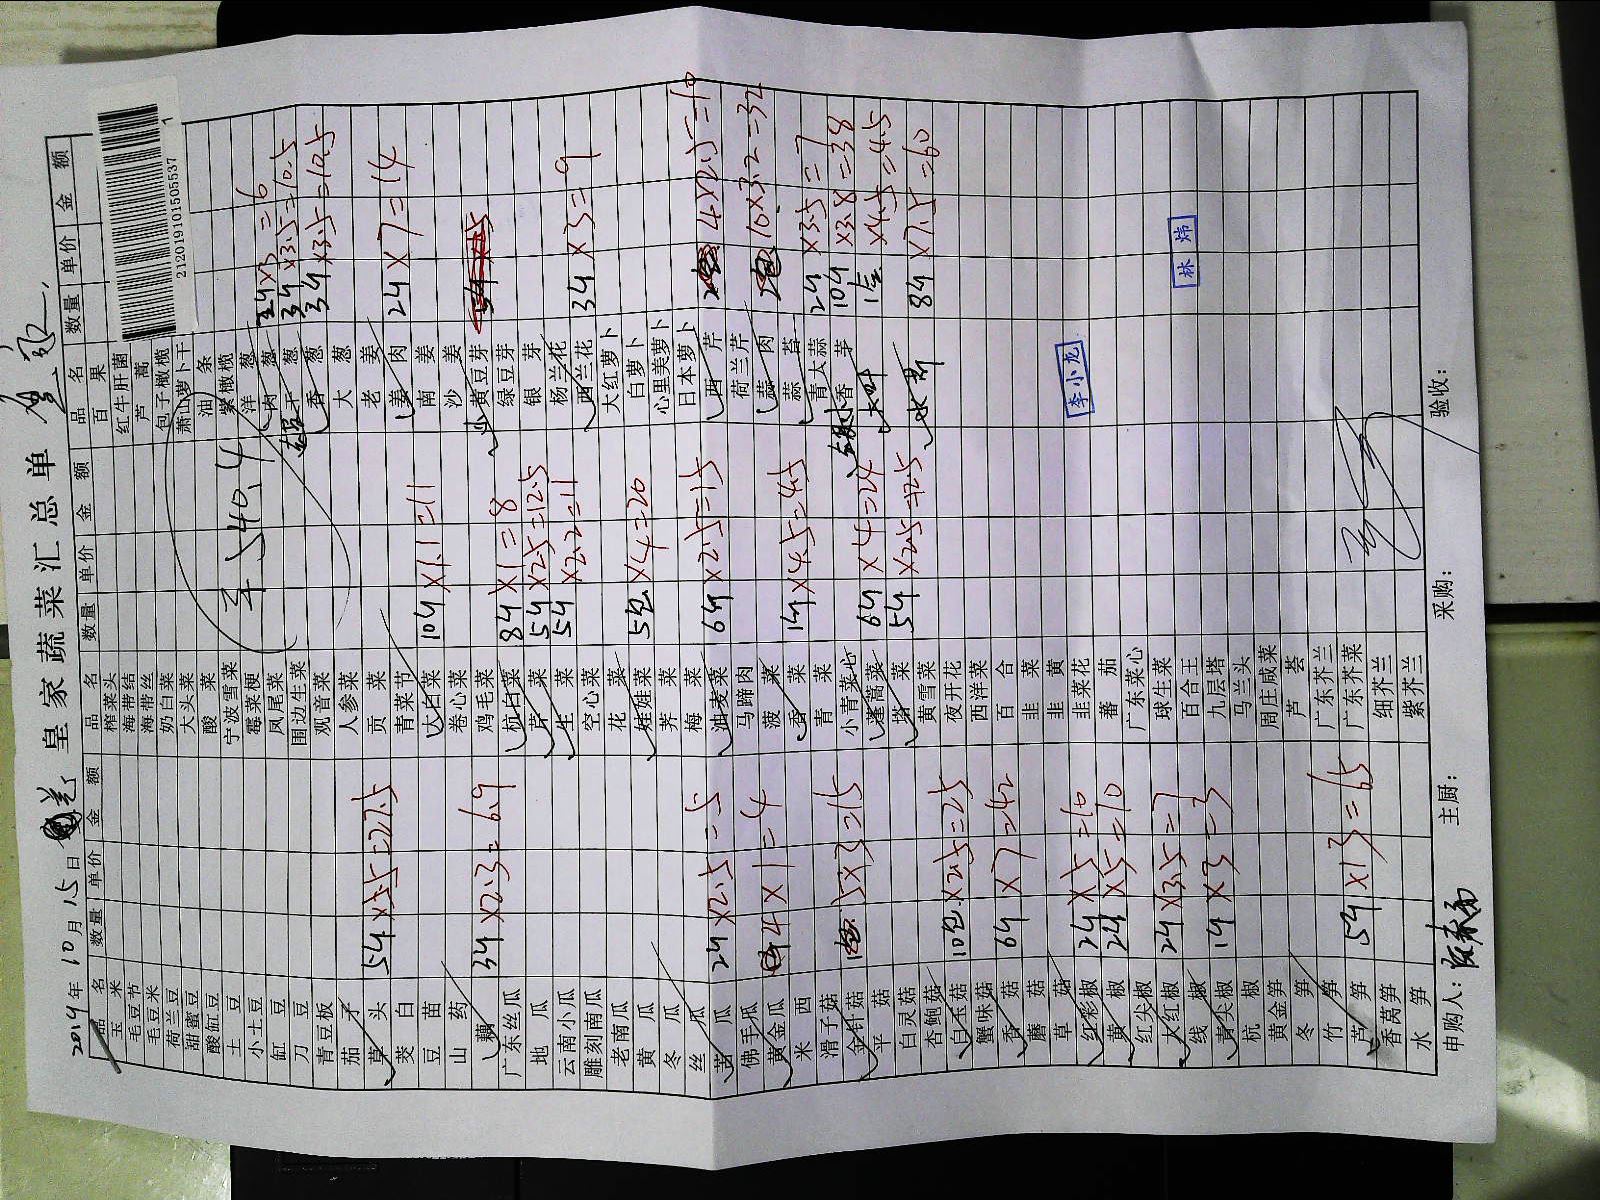 皇家蔬菜汇总单
2019年10月15日
品名 数量 单价 金额
玉米
毛豆节
毛豆米
荷兰豆
甜蜜豆
酸缸豆
土豆
小土豆
缸豆
刀豆
青豆板
茄子
草头 5斤×5.5=27.5
茭白
豆苗
山药
藕 3斤×2.3=6.9
广东丝瓜
地瓜
云南小瓜
雕刻南瓜
老南瓜
黄瓜
冬瓜
丝瓜
苦瓜 2斤×2.5=5
佛手瓜
黄金瓜 4×1=4
米西
滑子菇
金针菇 5×3=15
平菇
白灵菇
杏鲍菇
白玉菇 10包×2.5=25
蟹味菇
香菇 6斤×7=42
蘑菇
草菇
红彩椒 2斤×5=10
黄椒 2斤×5=10
红尖椒
大红椒 2斤×3.5=7
线椒
青尖椒 1斤×3=3
杭椒
黄金笋
冬笋
竹笋
芦笋 5斤×13=65
香莴笋
水笋
品名 数量 单价 金额
榨菜头
海带结
海带丝
奶白菜
大头菜
酸菜
宁波雪菜
霉菜梗 540.4
凤尾菜
围边生菜
观音菜
人参菜
贡菜
青菜节
大白菜 10斤×1.1=11
卷心菜
鸡毛菜
杭白菜 8斤×1=8
芹菜 5斤×2.5=12.5
生菜 5斤×2.2=11
空心菜
花菜
娃娃菜 5包×4=20
荠菜
梅菜
油麦菜 6斤×2.5=15
马蹄肉
菠菜
香菜 1斤×4.5=4.5
青菜
小青菜心
蓬蒿菜 6斤×4=24
塔菜 5斤×2.5=12.5
黄雪菜
夜开花
西洋菜
百合
韭菜
韭黄
韭菜花
蕃茄
广东菜心
球生菜
百合王
九层塔
马兰头
周庄咸菜
芦荟
广东芥兰
广东芥菜
细芥兰
紫芥兰
品名 数量 单价 金额
百果
红牛肝菌
芦蒿
包子橄榄
萧山萝卜干
油条
紫橄榄
洋葱
肉葱 2斤×3=6
干葱 3斤×3.5=10.5
香葱 3斤×3.5=10.5
大葱
老姜
姜肉 2斤×7=14
南姜
沙姜
黄豆芽
绿豆芽
银芽
杨兰花
西兰花 3斤×3=9
大红萝卜
白萝卜
心里美萝卜
日本萝卜
西芹 4×2.5=10
荷兰芹
蒜肉 10×3.2=32
蒜苔
青大蒜 2斤×3.5=7
小香芋 10斤×3.8=38
1×4.5=4.5
8斤×7.5=60
212019101505537
1
李小龙
林炜
申购人：
主厨：
采购：
验收：